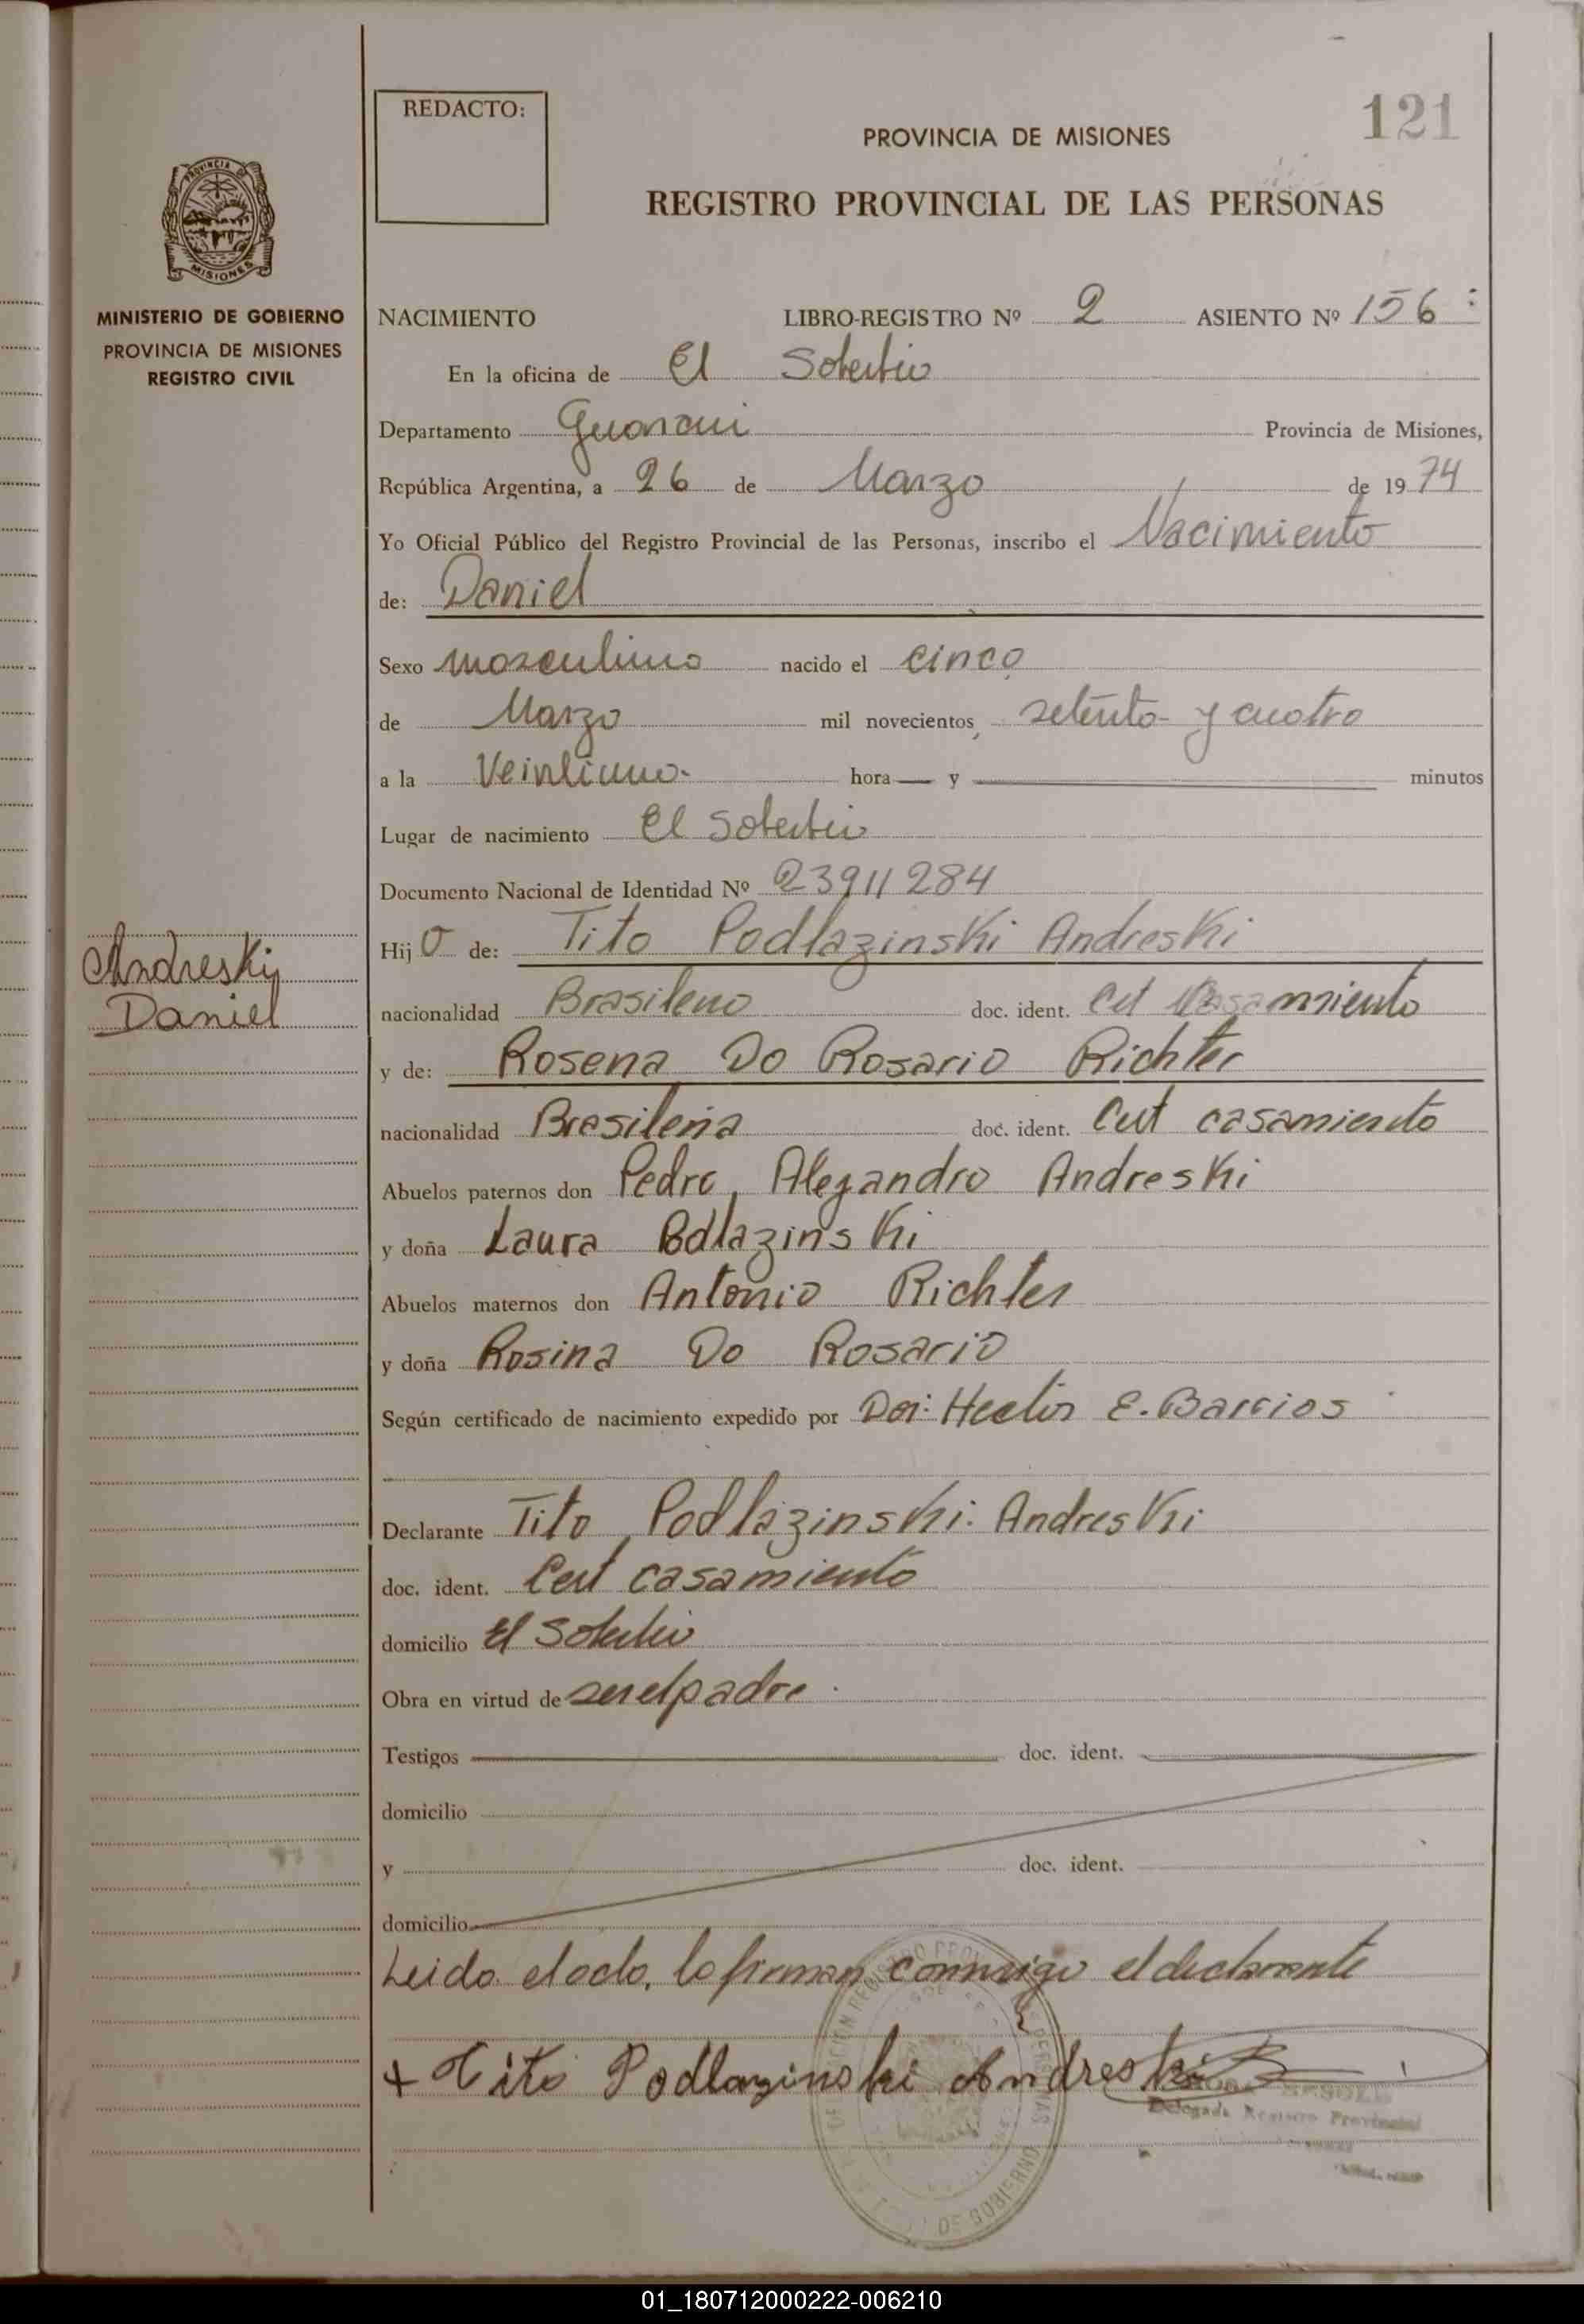 121
REDACTO:
PROVINCIA DE MISIONES
REGISTRO PROVINCIAL DE LAS PERSONAS
PROVINCIA DE
MISIONES
MINISTERIO DE GOBIERNO
PROVINCIA DE MISIONES
REGISTRO CIVIL
NACIMIENTO LIBRO-REGISTRO Nº 2 ASIENTO Nº 156
En la oficina de El Soberbio
Departamento Guarani Provincia de Misiones,
República Argentina, a 26 de Marzo de 1974
Yo Oficial Público del Registro Provincial de las Personas, inscribo el Nacimiento
de: Daniel
Sexo masculino nacido el cinco
de Marzo mil novecientos setenta y cuatro
a la Veintiuno hora — y — minutos
Lugar de nacimiento El Soberbio
Documento Nacional de Identidad Nº 23911284
Andreski
Daniel
Hijo de: Tito Podlazinski Andreski
nacionalidad Brasileno doc. ident. Cert Casamiento
y de: Rosena Do Rosario Richter
nacionalidad Brasileña doc. ident. Cert casamiento
Abuelos paternos don Pedro, Alejandro Andreski
y doña Laura Podlazinski
Abuelos maternos don Antonio Richter
y doña Rosina Do Rosario
Según certificado de nacimiento expedido por Dor: Hector E. Barrios
Declarante Tito Podlazinski Andreski
doc. ident. Cert casamiento
domicilio El Soberbio
Obra en virtud de ser el padre
Testigos doc. ident.
domicilio
y doc. ident.
domicilio
Leido el acto, lo firman conmigo el declarante
+ Tito Podlazinski Andreski
Delegada Registro Provincial
01_180712000222-006210